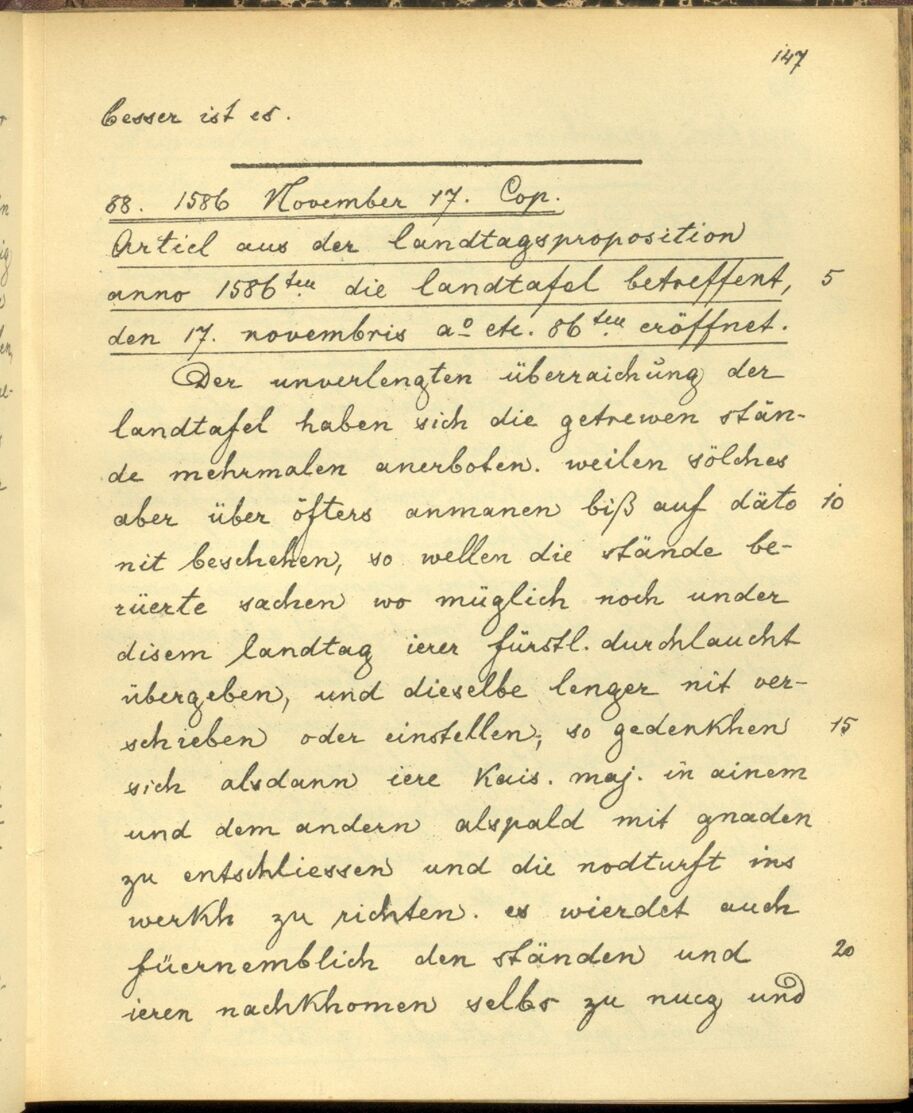 147
besser ist es.
88. 1586 November 17. Cop.
Articl aus der landtagsproposition
anno 1586ten die landtafel betreffent, 5
den 17. novembris ao etc. 86ten eröffnet.
Der unverlengten überraichung der
landtafel haben sich die getrewen stän-
de mehrmalen anerboten. weilen sölches
aber über öfters anmanen biß auf däto 10
nit beschehen, so wellen die stände be-
rüerte sachen wo müglich noch under
disem landtag ierer fürstl. durchlaucht
übergeben, und dieselbe lenger nit ver-
schieben oder einstellen, so gedenkhen 15
sich alsdann iere Kais. maj. in ainem
und dem andern alspald mit gnaden
zu entschliessen und die nodturft ins
werkh zu richten. es wierdet auch
füernemblich den ständen und 20
ieren nachkhomen selbs zu nucz und